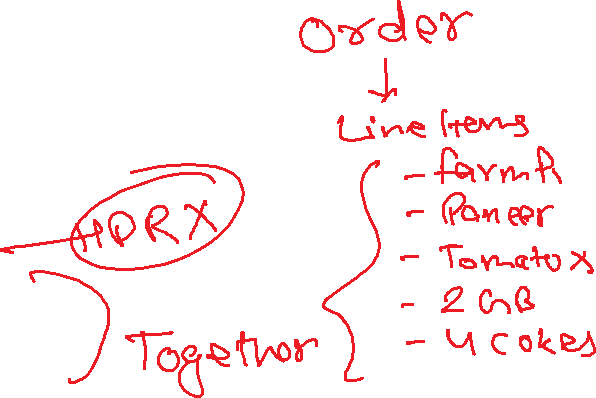 Order
Line Items
- farm
- Paneer
- Tomato x
- 2 GB
- 4 Cokes
HDRX
Together